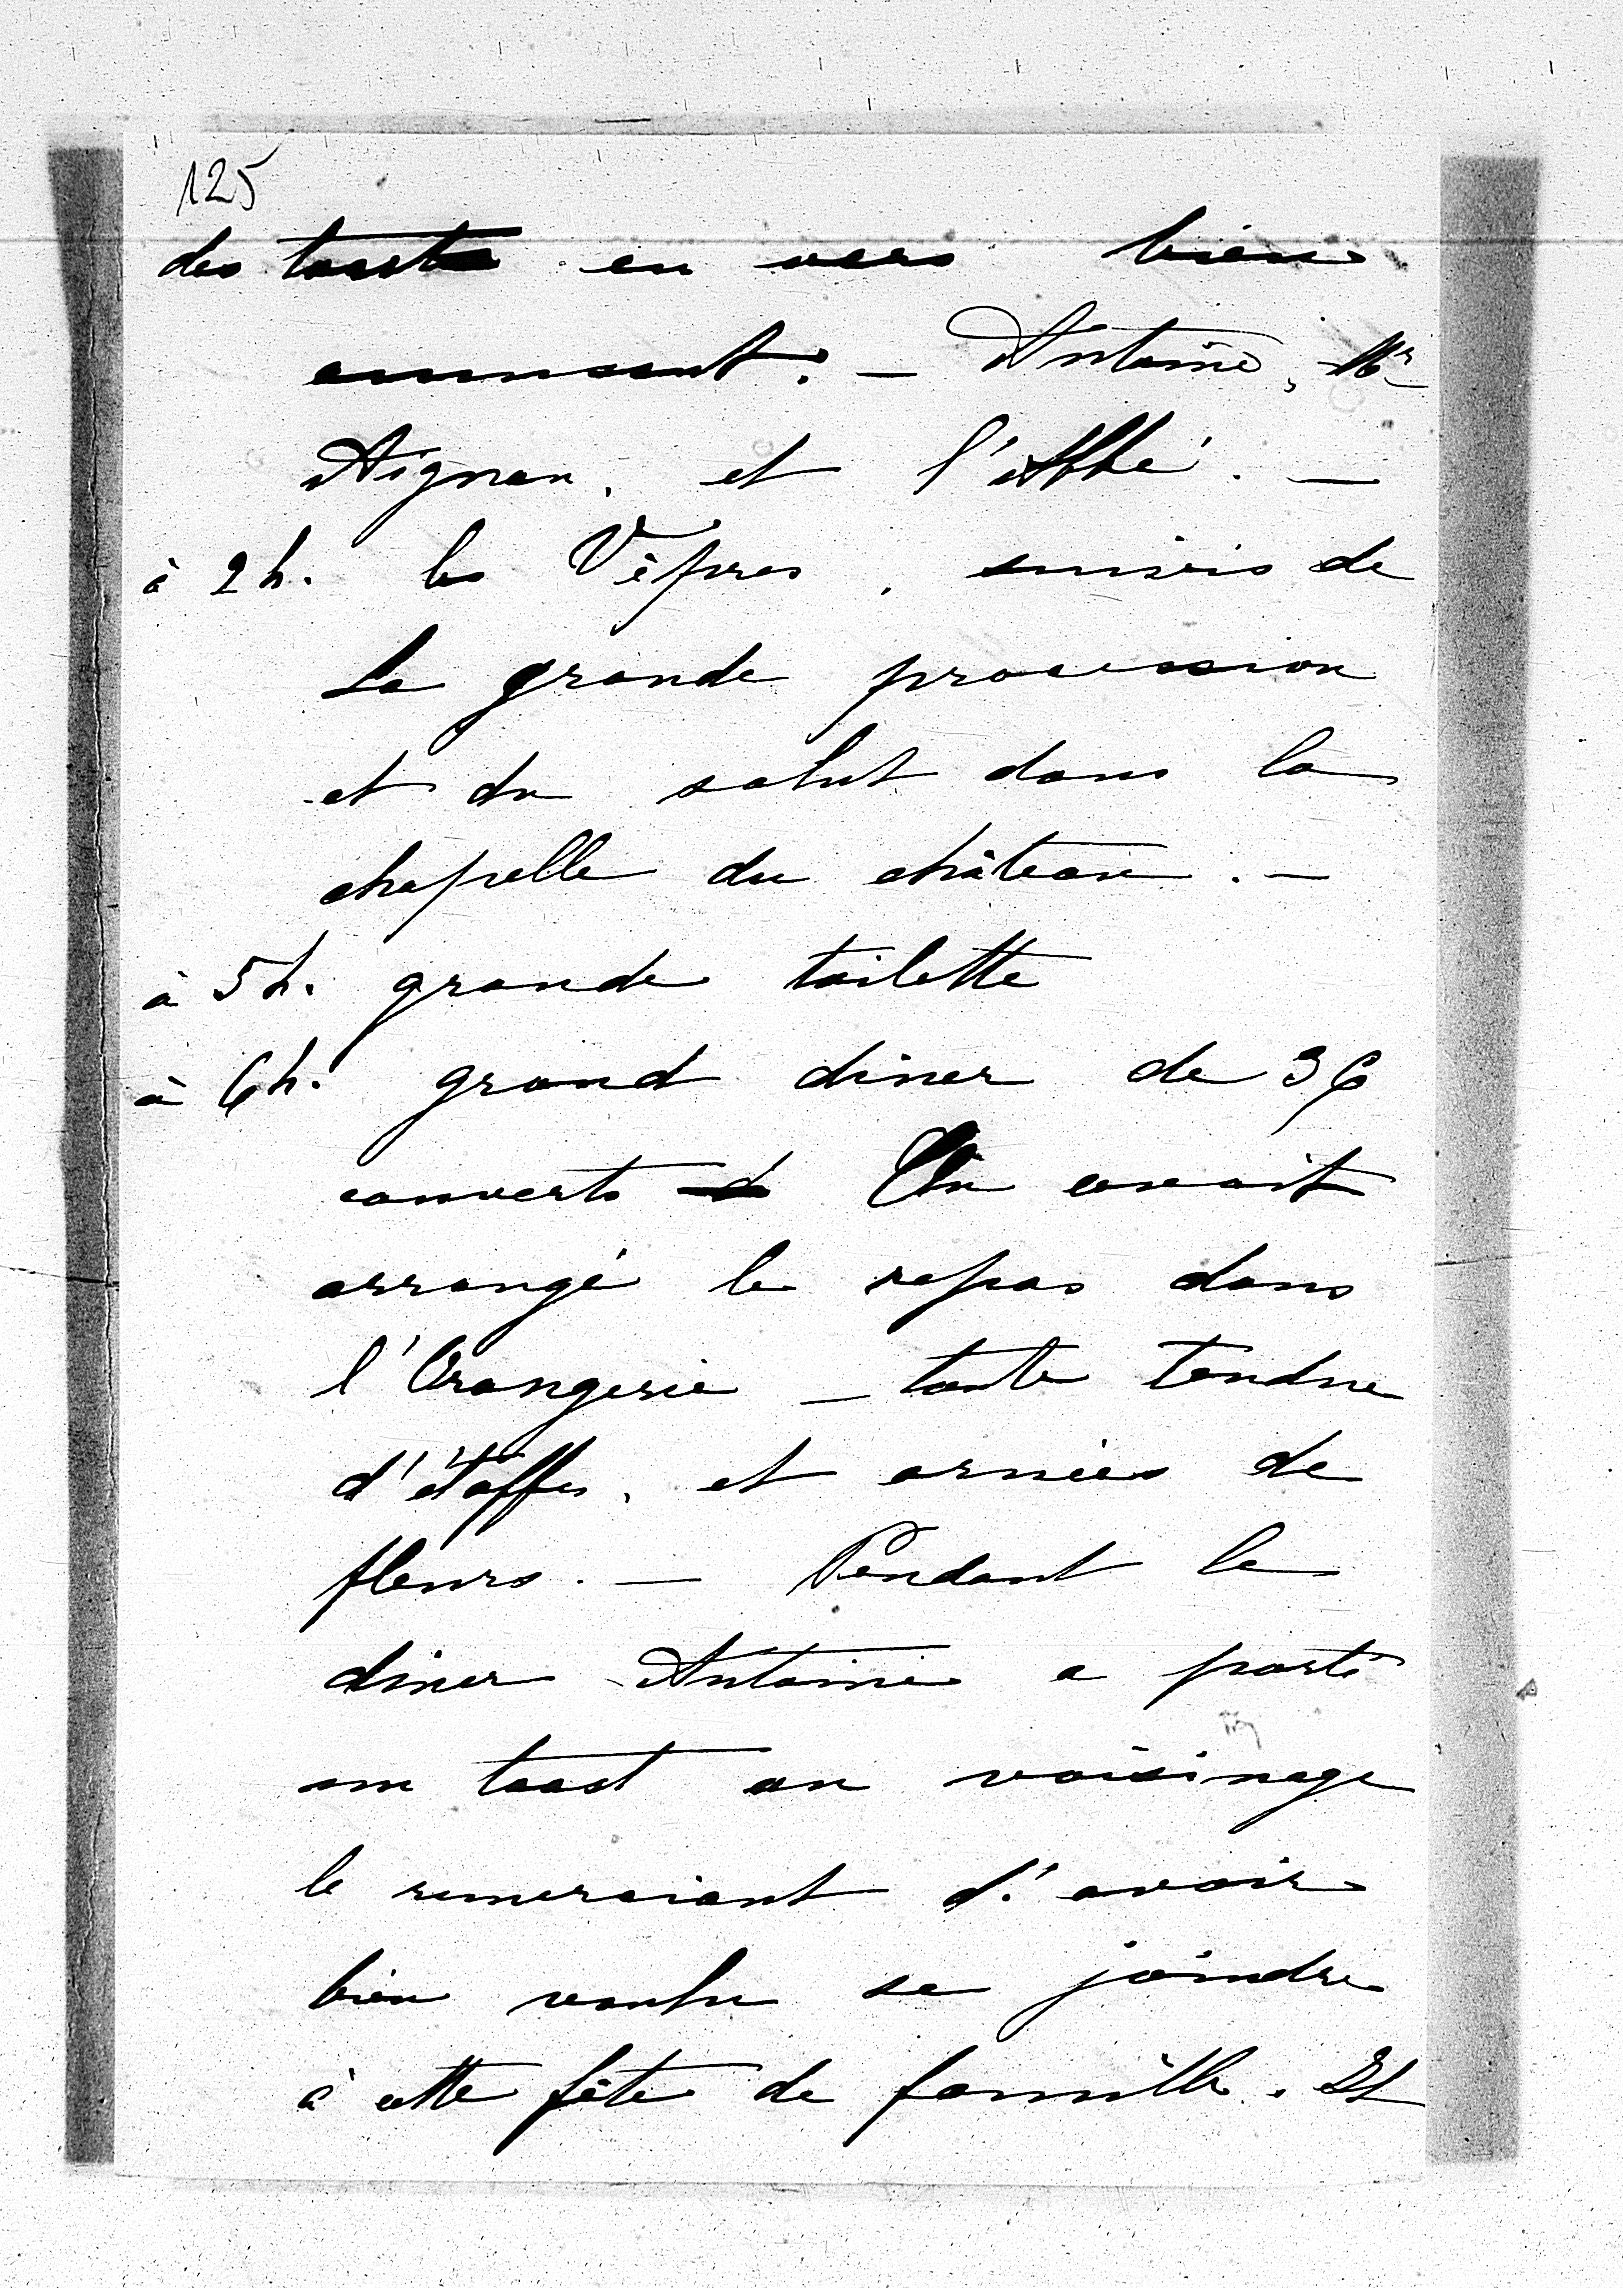 125
des toasts en vers bien
amusant. — Antoine, Mr
Aignan, et l'Abbé. —
à 2 h. les Vêpres, suivis de
La grande procession
et du salut dans la
chapelle du château. —
à 5 h. grande toilette
à 6 h. grand diner de 36
couverts d On avait
arrangé le repas dans
l'Orangerie — toute tendue
d'étoffes, et ornées de
fleurs. — Pendant le
diner Antoine a porté
un toast au voisinage
le remerciant d'avoir
bien voulu se joindre
à cette fête de famille. Et